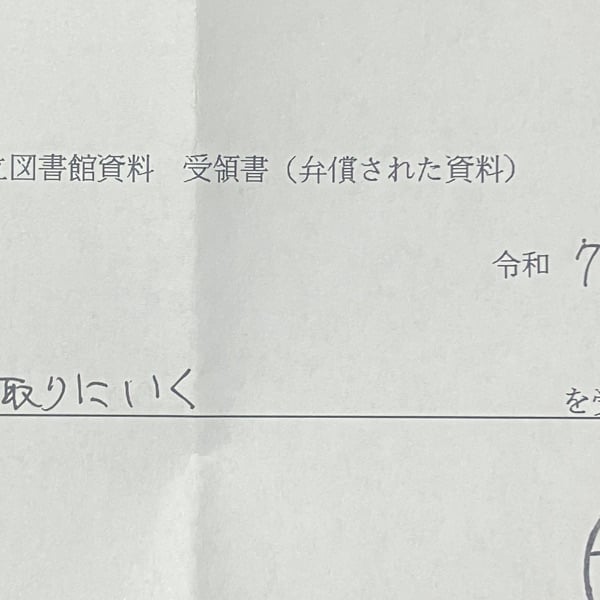 図書館資料　受領書（弁償された資料）
令和 7
取りにいく を